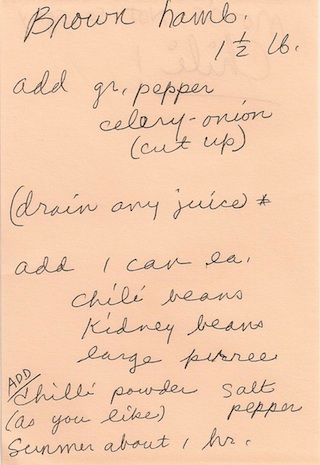 Brown hamb.
1 1/2 lb.
add gr. pepper
celery-onion
(cut up)
(drain any juice) *
add 1 can ea.
chili beans
Kidney beans
large purree
ADD
chilli powder salt
(as you like) pepper
Simmer about 1 hr.